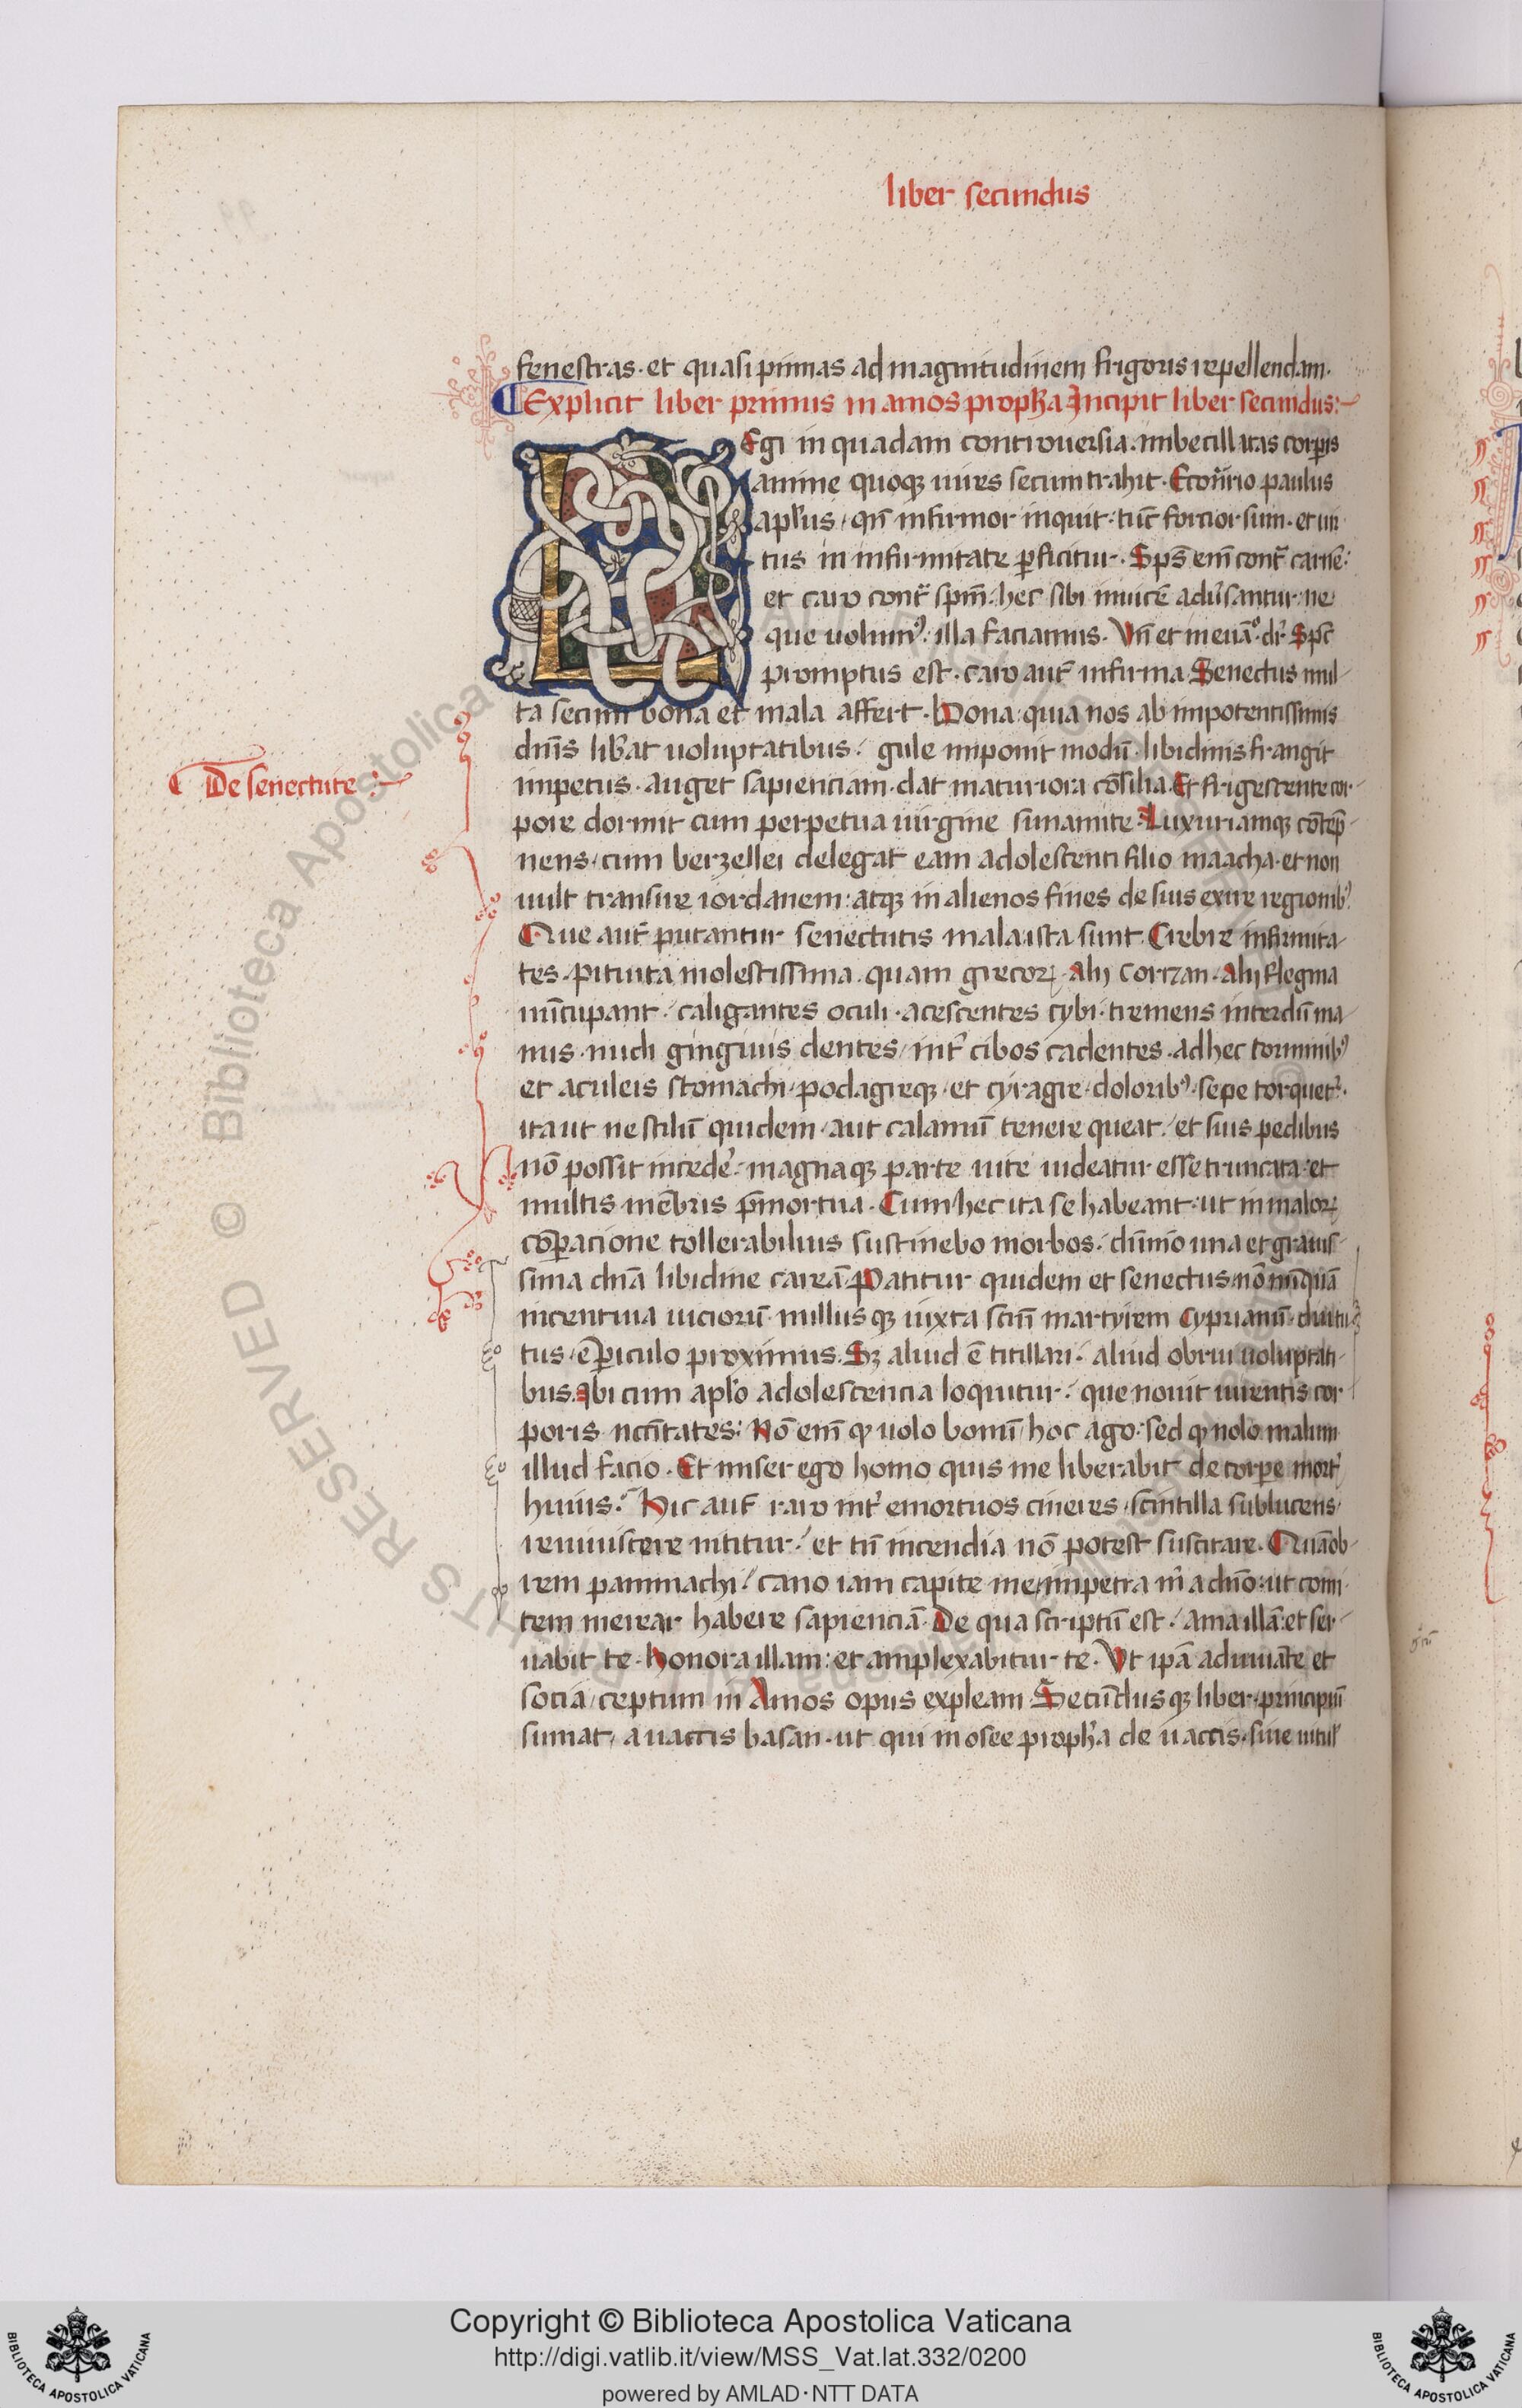 liber secundus
fenestras · et quasi pinnas ad magnitudinem frigoris repellendam ·
Explicit liber primus in amos proph̃a Incipit liber secundus:
LEgi in quadam controuersia · imbecillitas corꝑis
anime quoqꝫ uires secum trahit · Econ̄rio paulus
apl̃us / qñ infirmor inquit · tūc forcior sum · et uir
tus in infirmitate ꝑficitur · Sp̄s em̄ cont̃ carnē :
et caro cont̃ sp̄m · hec sibi inuicē adũsantur · ne
que uolumꝰ · illa faciamus · Vñ et in euãᵒ · dr̃ · Sp̄c
promptus est · caro aut̃ infirma Senectus mul
ta secum bona et mala affert · Bona · quia nos ab impotentissimis
dn̄is lib̃at uoluptatibus · gule imponit modū · libidinis frangit
impetus · auget sapienciam · dat maturiora cōsilia · Et frigescente cor
De senectute :
pore dormit cum perpetua uirgine sunamite · Luxuriamqꝫ cōtep̄
nens / cum berzellei delegat eam adolescenti filio maacha · et non
uult transire iordanem : atqꝫ in alienos fines de suis exire regionibꝰ
Que aut̃ putantur senectutis mala ista sunt · Crebre infirmita
tes · pituita molestissima · quam grecoꝝ · alij corizan · alij flegma
nūcupant · caligantes oculi · acescentes cybi · tremens interdū ma
nus · nudi gingiuis dentes / int̃ cibos cadentes · ad hec torminibꝰ
et aculeis stomachi / podagreqꝫ · et cyragre · doloribꝰ · sepe torquet̃ ·
ita ut ne stilū quidem · aut calamū tenere queat · et suis pedibus
nō possit incedẽ · magnaqꝫ parte uite uideatur esse truncata · et
multis mēbris p̄mortua · Cum hec ita se habeant · ut in maloꝝ
cōꝑacione tollerabilius sustinebo morbos · dūmō una et grauis
sima dnã libidine careã · Patitur quidem et senectus / nō nūquã
incentiua uiciorū · nullusqꝫ iuxta scm̄ martyrem Cyprianū · diutiꝰ
tus / ē ꝑiculo proximus · Sꝫ aliud ē titillari · aliud obrui uoluptati
bus · Ibi cum apl̃o adolescencia loquitur · que nouit uiuentis cor
poris nccītates : Nō em̄ qꝫ uolo bonū / hoc ago · sed qꝫ nolo malum
illud facio · Et miser ego homo quis me liberabit de corꝑe mort̃
huius · Hic aut̃ raro int̃ emortuos cineres / scintilla sublucens /
reuiuiscere nititur · et tñ incendia nō potest suscitare · Quãob
rem pammachi · cano iam capite me / impetra m̃ a dño : ut comi
tem merear habere sapienciã · De qua scriptū est · ama illã : et ser
uabit te · honora illam : et amplexabitur te · Vt ipã adiuuāte et
socia / ceptum in Amos opus expleam · Secūdusqꝫ liber / principiū
sumat / a uaccis basan · ut qui in osee proph̃a de uaccis · siue uitul̃
Biblioteca Apostolica
RIGHTS RESERVED ©
Copyright © Biblioteca Apostolica Vaticana
http://digi.vatlib.it/view/MSS_Vat.lat.332/0200
powered by AMLAD·NTT DATA
BIBLIOTECA APOSTOLICA VATICANA
BIBLIOTECA APOSTOLICA VATICANA